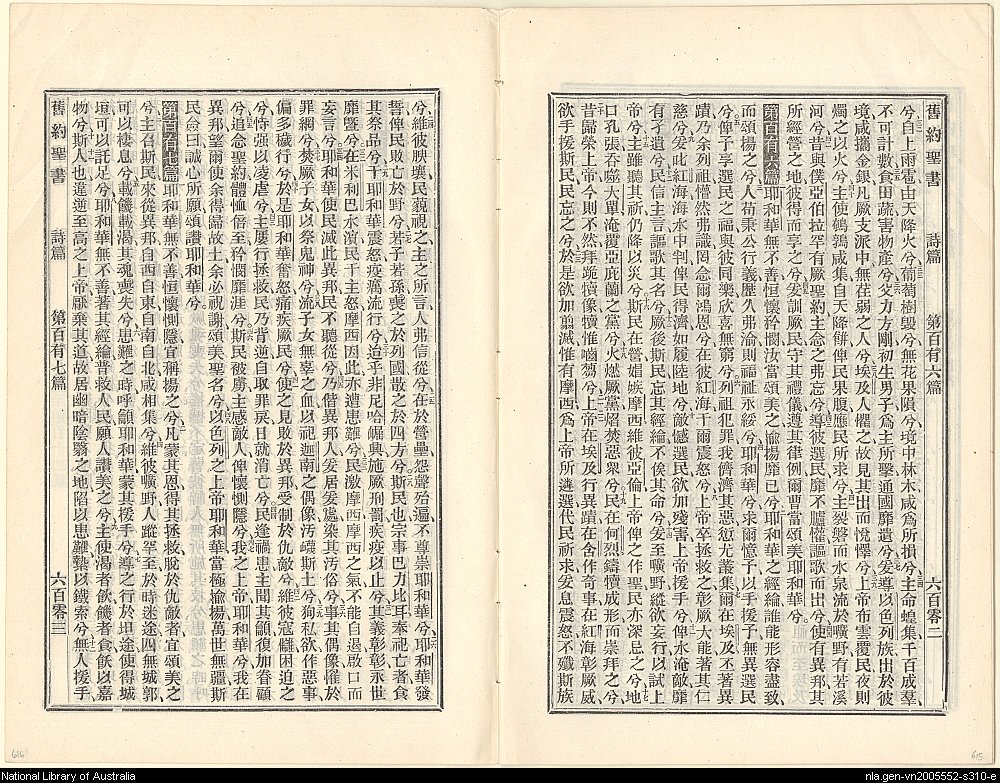 舊約聖書 詩篇 第百有六篇 六百零二
兮自上雨雹由天降火兮葡萄樹毀兮無花果隕兮境中林木咸爲所損兮主命蝗集千百成羣
不可計數食田蔬害物產兮爰力方剛初生男子爲主所擊通國靡遺兮爰導以色列族出於彼
境咸攜金銀凡厥支派中無荏弱之人兮埃及人懼之故見其出而悅懌兮上帝布雲覆民夜則
燭之以火兮主使鵪鶉咸集自天降餅俾民果腹應民所求兮主裂磐而水泉流於曠野有若溪
河兮昔與僕亞伯拉罕有厥聖約主念之弗忘兮導彼選民靡不臚懽謳歌而出兮使有異邦其
所經營之地彼得而享之兮爰訓厥民守其禮儀遵其律例爾曹當頌美耶和華兮
第百有六篇 耶和華無不善恒懷矜憫汝當頌美之揄揚靡已兮耶和華之經綸誰能形容盡致
而頌揚之兮人苟秉公行義歷久弗渝則福祉永綏兮耶和華兮求爾憶予以手援予無異選民
兮俾予享選民之福與彼同樂欣喜無窮兮列祖犯罪我儕濟其惡愆尤叢集爾在埃及丕著異
蹟乃余列祖懵然弗識罔念爾鴻恩兮在彼紅海干爾震怒兮上帝卒拯救之彰厥大能著其仁
慈兮爰叱紅海海水中判俾民得濟如履陸地兮敵憾選民欲加殘害上帝援手兮俾水淹敵靡
有孑遺兮民信主言謳歌其名兮厥後斯民忘其經綸不俟其命兮爰至曠野縱欲妄行以試上
帝兮主雖聽其祈仍降以災兮斯民在營媢嫉摩西維彼亞倫上帝俾之作聖民亦深忌之兮地
口孔張吞噬大單淹覆亞庇蘭之黨兮火燃厥黨熖焚惡衆兮民在何烈鑄犢成形而崇拜之兮
昔歸榮上帝今則不然拜跪犢像犢惟嚙芻兮上帝在埃及行異蹟在含作奇事在紅海彰厥威
欲手援斯民民忘之兮於是欲加翦滅惟有摩西爲上帝所遴選代民祈求爰息震怒不殲斯族
兮維彼腴壤民藐視之主之所言人弗信從兮在於營壘怨聲殆遍不尊崇耶和華兮耶和華發
誓俾民敗亡於野兮若子若孫喪之於列國散之於四方兮斯民也宗事巴力比耳奉祀亡者食
其祭品兮干耶和華震怒疫癘流行兮迨乎非尼哈崛興施厥刑罰疾疫以止兮其義彰彰永世
靡曁兮在米利巴水濱民干主怒摩西因此亦遭患難兮民激摩西摩西之氣不能自遏啟口而
妄言兮耶和華使民滅此異邦民不聽從兮乃偕異邦人爰居爰處染其汚俗兮事其偶像懼於
罪網兮焚厥子女以祭鬼神兮流子女無辜之血以祀迦南之偶像汚衊斯土兮狥私欲作惡事
偏多穢行兮於是耶和華奮怒痛疾厥民兮使之見敗於異邦受制於仇敵兮維彼寇讎困迫之
兮恃强以淩虐兮主屢行拯救民乃背逆自取罪戾日就消亡兮民遂禍患主聞其籲復加眷顧
兮追念聖約體恤倍至矜憫靡涯兮斯民被虜主感敵人俾懷惻隱兮我之上帝耶和華兮我在
異邦望爾使余得歸故土余必視謝頌美聖名兮以色列之上帝耶和華當極揄揚萬世無疆斯
民僉曰誠心所願頌讚耶和華兮
第百有七篇 耶和華無不善恒懷惻隱宜稱揚之兮凡蒙其恩得其拯救脫於仇敵者宜頌美之
兮主召斯民來從異邦自西自東自南自北咸相集兮維彼曠野人蹤罕至於時迷途四無城郭
可以棲息兮載饑載渴其魂喪失兮患難之時呼籲耶和華蒙其援手兮導之行於坦途使得城
垣可以託足兮耶和華無不善著其經綸普救人民願人讚美之兮主使渴者飲饑者食飫以嘉
物兮斯人也違逆至高之上帝厭棄其道故居幽暗陰翳之地陷以患難縶以鐵索兮無人援手
舊約聖書 詩篇 第百有七篇 六百零三
616
615
National Library of Australia
nla.gen-vn2005552-s310-e